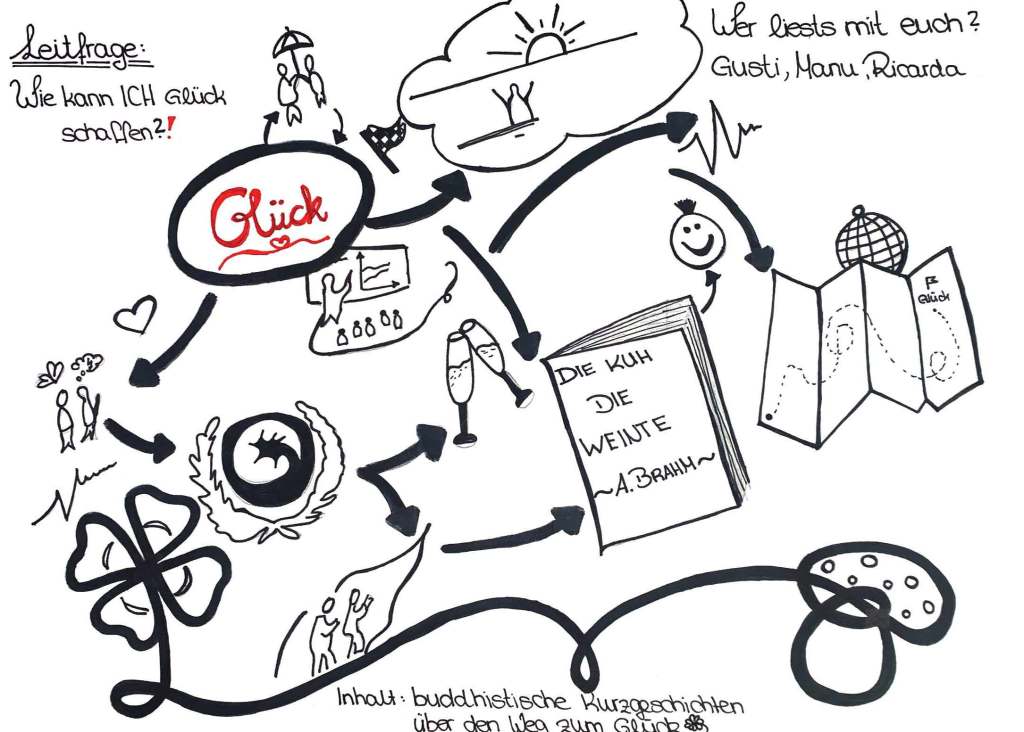 Leitfrage:
Wie kann ICH Glück
schaffen?!
Wer liests mit euch?
Gusti, Manu, Ricarda
Glück
?
Glück
DIE KUH
DIE
WEINTE
~A. BRAHM~
Inhalt: buddhistische Kurzgeschichten
über den Weg zum Glück